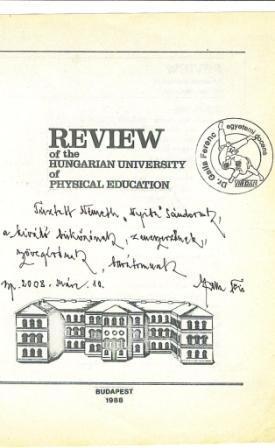 REVIEW
of the
HUNGARIAN UNIVERSITY
of
PHYSICAL EDUCATION
Dr. Galla Ferenc egyetemi docens
Tisztelt Németh „Nyiba” Sándornak,
a kiváló birkózónak, zeneszerzőnek,
szövegírónak, barátomnak
Bp. 2008. márc. 10.
Galla Feri
BUDAPEST
1988